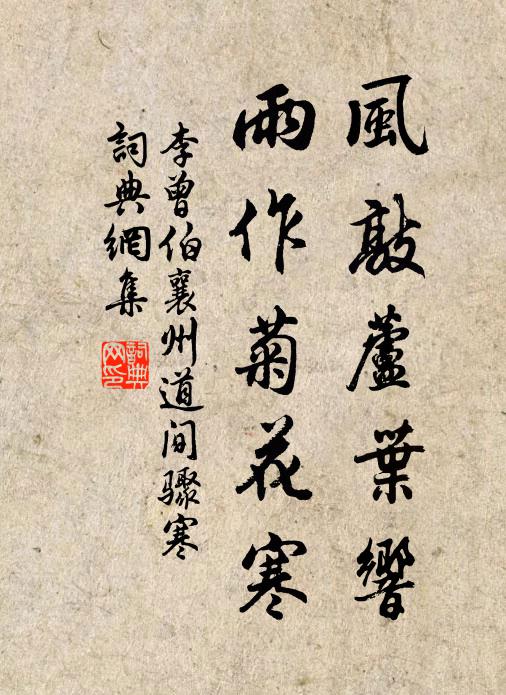 風敲蘆葉響
雨作菊花寒
李曾伯襄州道間驟寒
詞典網集
詞典网印